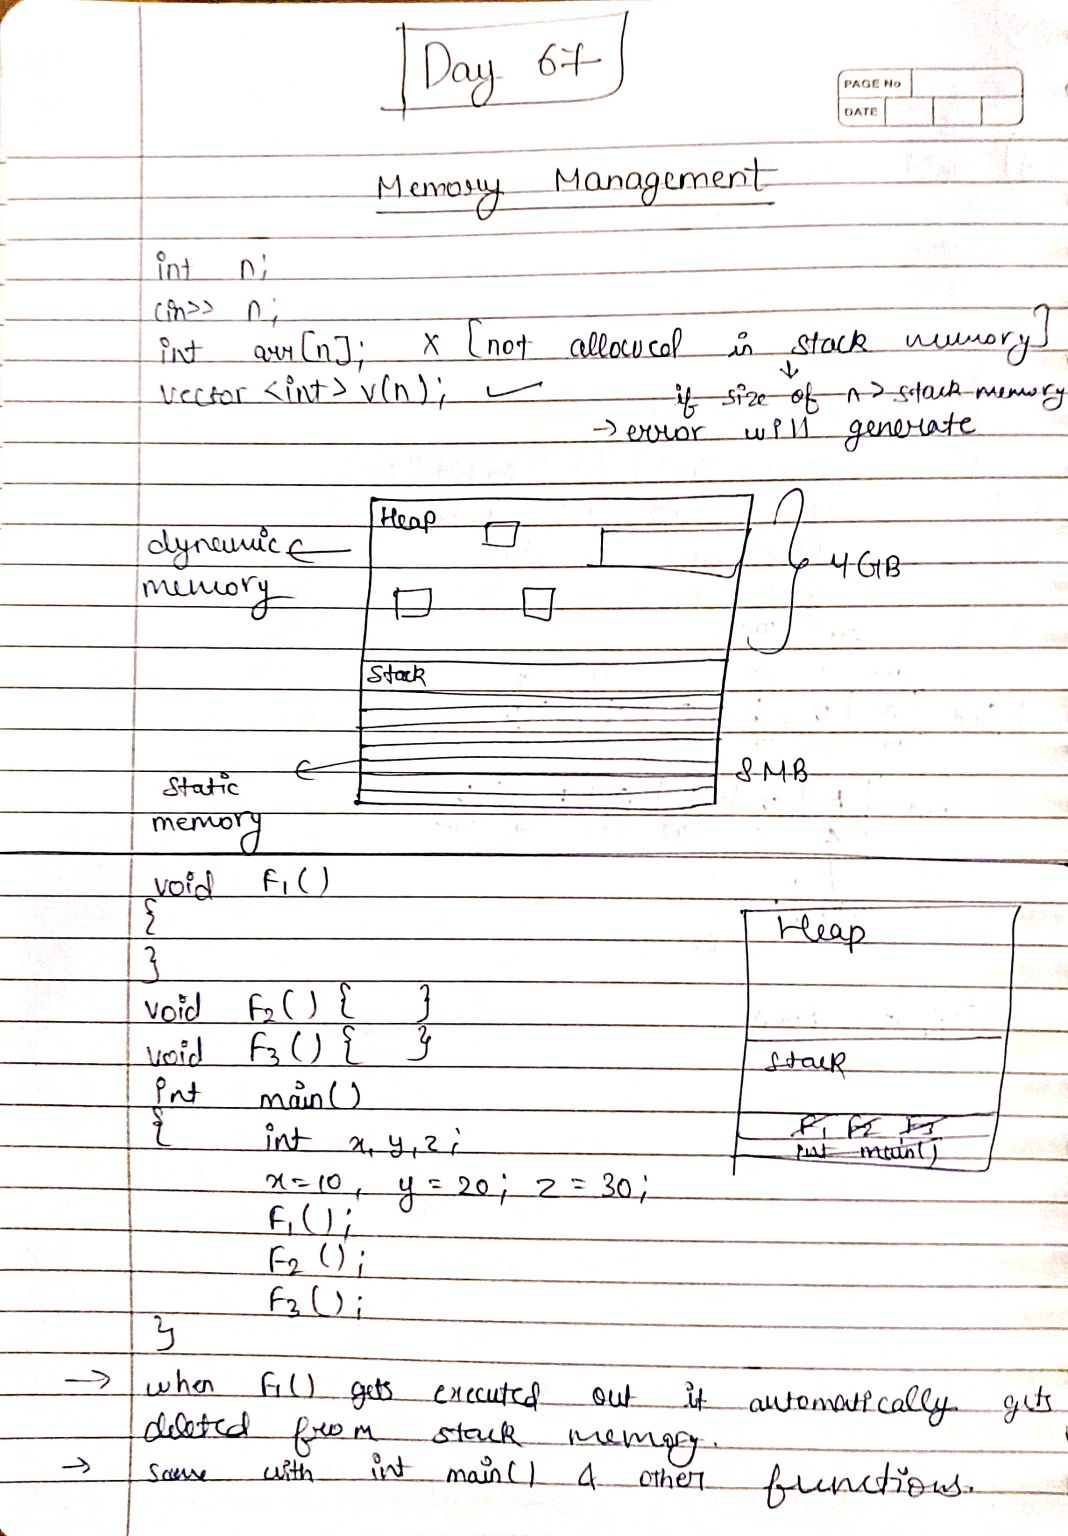 Day 67
PAGE No
DATE
Memory Management
int n;
cin>> n;
int arr[n]; X [not allowed in stack memory]
vector <int> v(n); ✓ if size of n > stack memory
→ error will generate
Heap
dynamic
memory
4 GB
Stack
8 MB
Static
memory
void F1()
{
}
void F2() { }
void F3() { }
int main()
{ int x, y, z;
x=10, y = 20; z = 30;
F1();
F2 ();
F3();
}
Heap
Stack
F1 F2 F3
int main()
→ when F1() gets executed out it automatically gets
deleted from stack memory.
→ same with int main() & other functions.